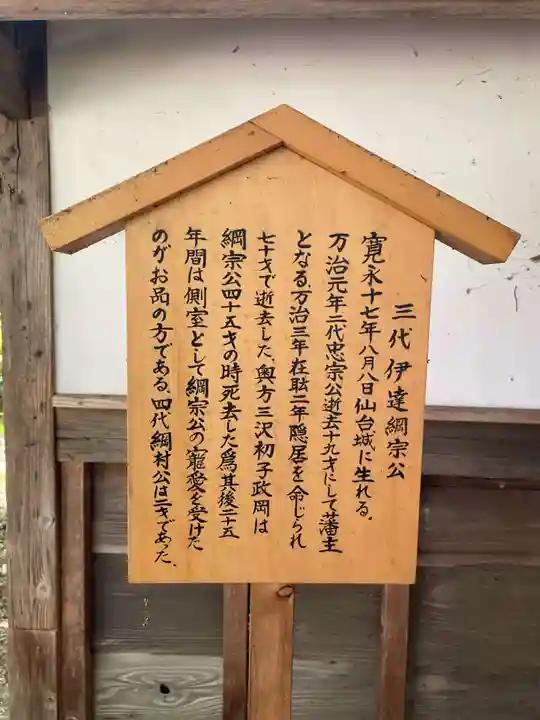 三代伊達綱宗公
寛永十七年八月八日仙台城に生れる。
万治元年二代忠宗公逝去十九才にして藩主
となる、万治三年在耺二年隠居を命じられ
七十才で逝去した、奥方三沢初子政岡は
綱宗公四十五才の時死去した為其後二十五
年間は側室として綱宗公の寵愛を受けた
のがお品の方である、四代綱村公は二才であった、